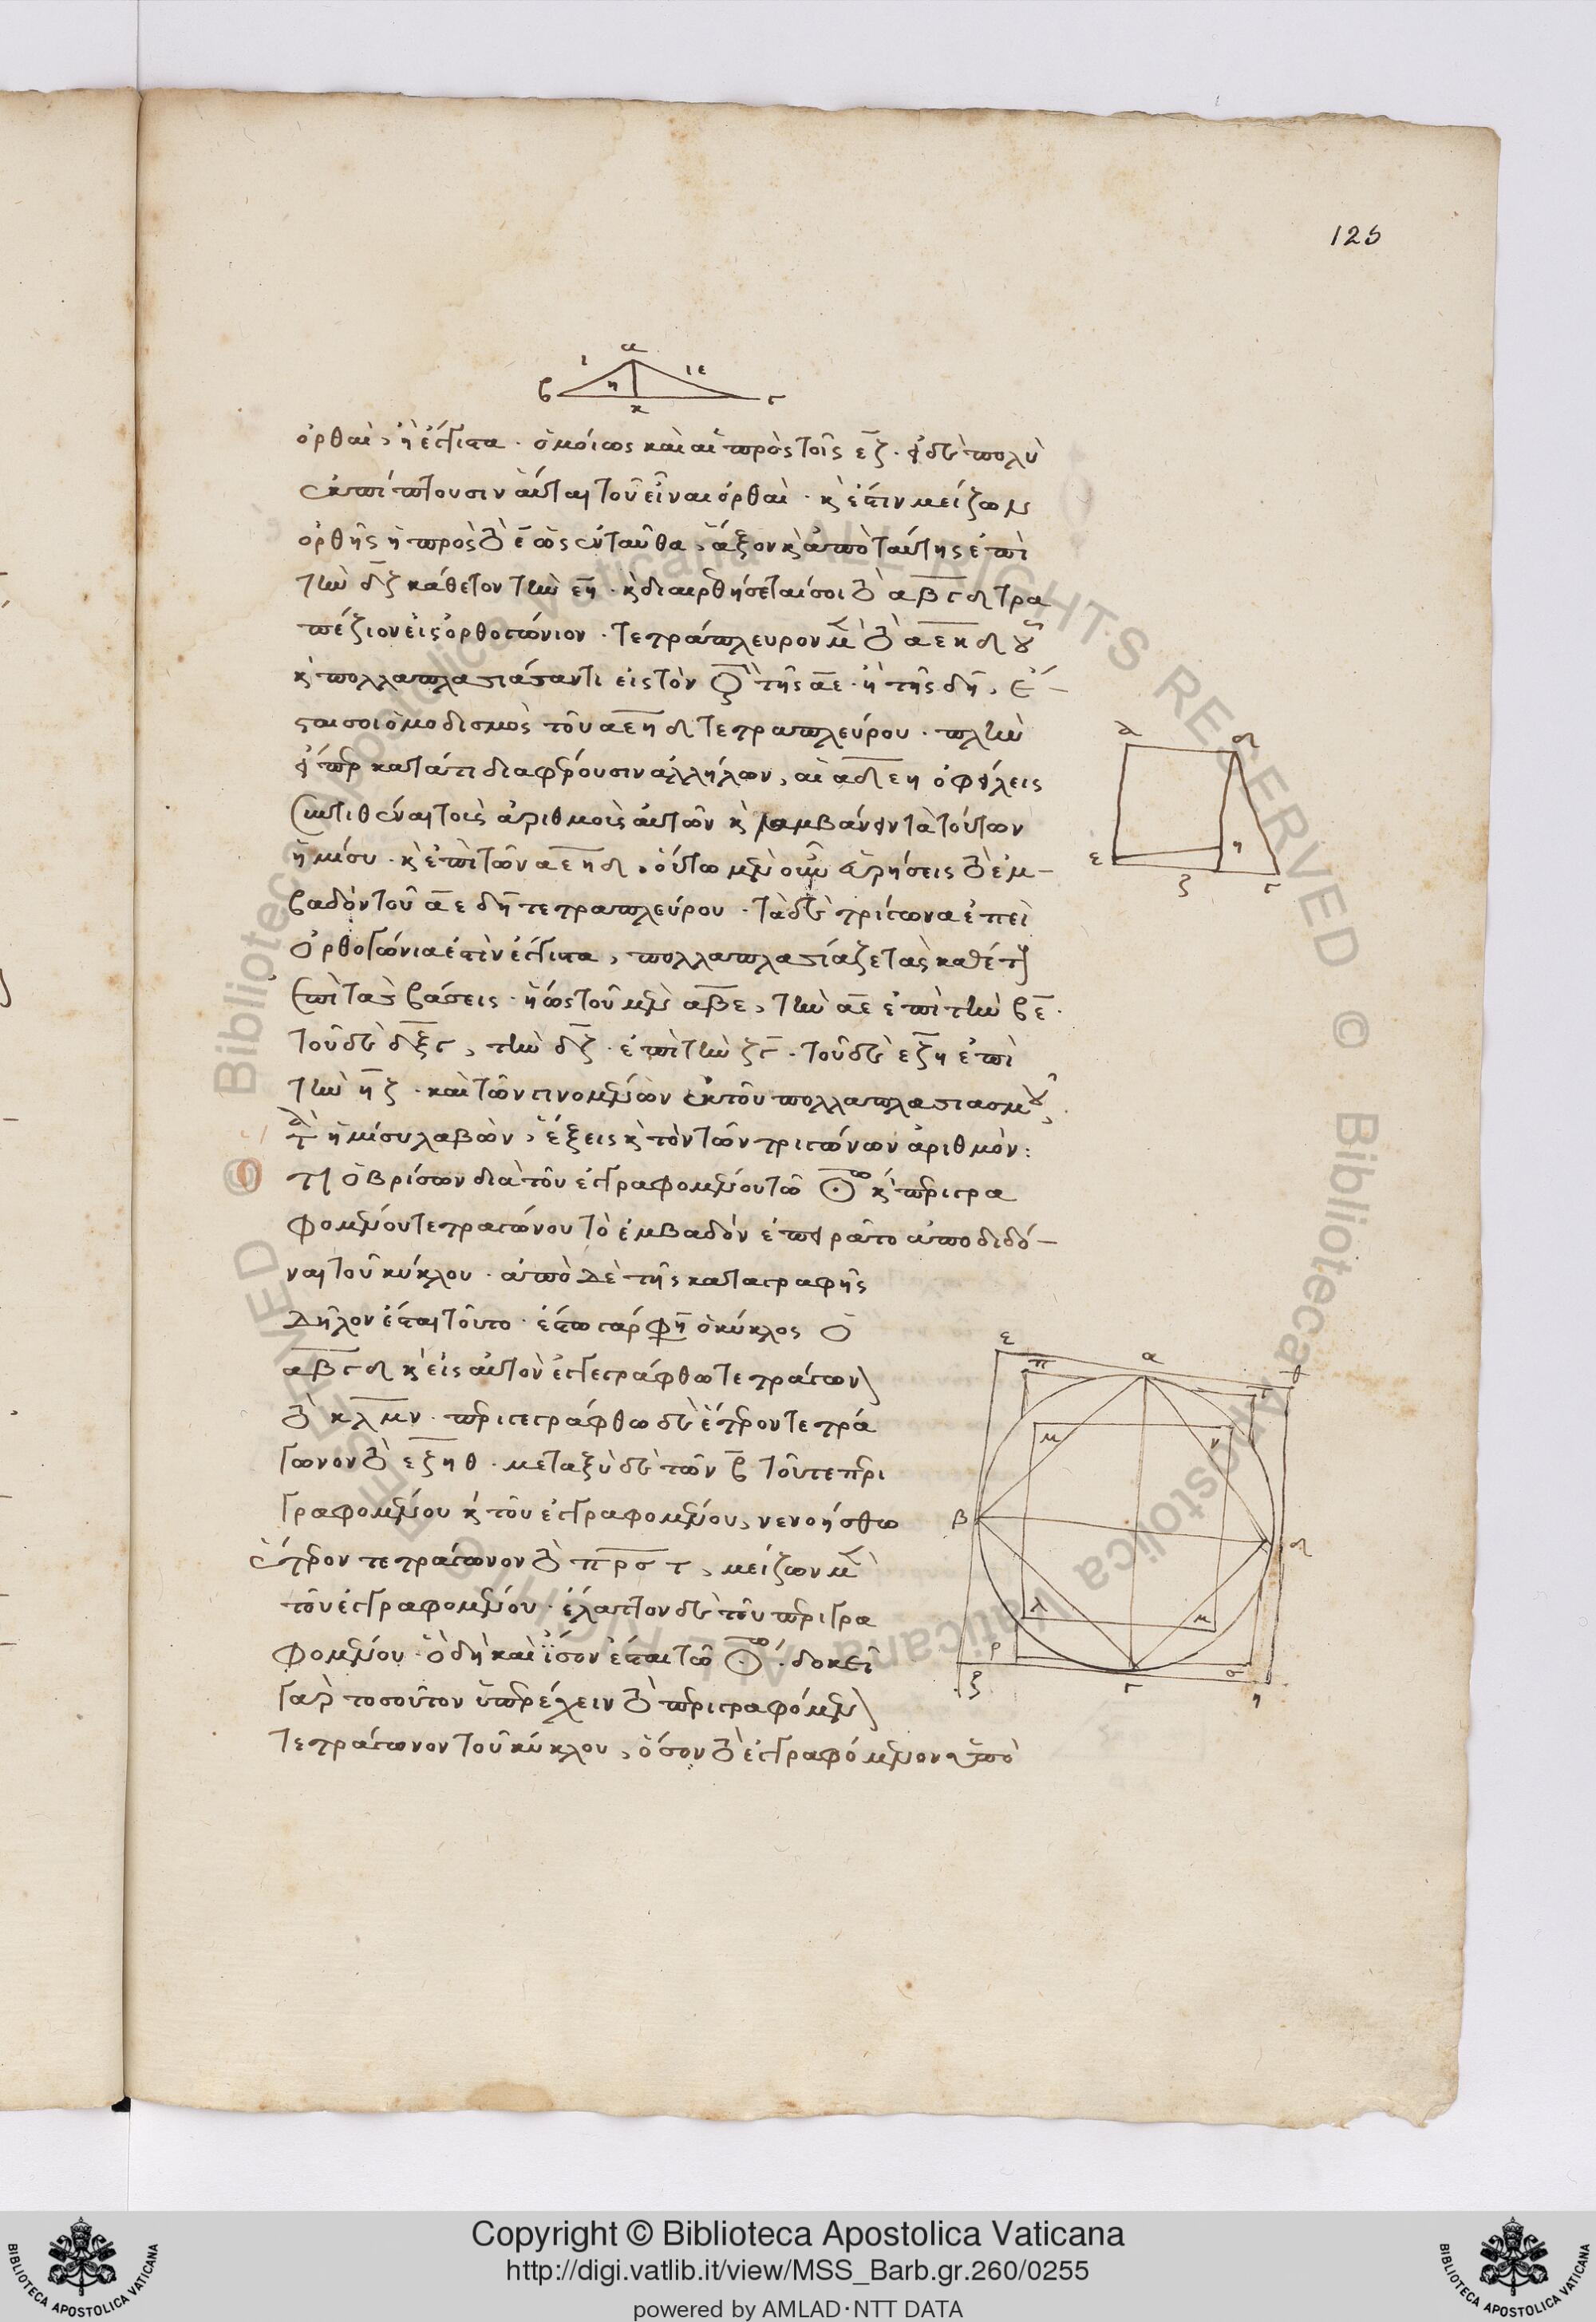 125
α
ι ιε
β η γ
κ
ὀρθαὶ, ἢ ἔγγιστα · ὁμοίως καὶ αἱ πρὸς τοῖς εζ · εἰ δὲ πολὺ
ἐκπίπτουσιν αὗται τοῦ εἶναι ὀρθαὶ · κ ἔστιν μείζων
ὀρθῆς ἡ πρὸς τὸ ε ὡς ἐνταῦθα, ἄξον κ ἀπὸ ταύτης ἐπὶ
τὴν δζ κάθετον τὴν εη · κ διαιρεθήσεταί σοι τὸ αβγδ τρα
πέζιον εἰς ὀρθογώνιον · τετράπλευρον μὲν τὸ αεηδ
κ πολλαπλασιάσαντι εἰς τὸν τῆς αε · ἢ τῆς δη, ἔ-
σται σοι ὁ ποδισμὸς τοῦ αεηδ τετραπλεύρου · πλὴν
εἴπερ κατά τι διαφέρουσιν ἀλλήλων, αἱ αδ εη ὀφείλεις
συντιθέναι τοὺς ἀριθμοὺς αὐτῶν κ λαμβάνειν τὰ τούτων
ἡμίση · κ ἐπὶ τῶν αε ηδ · οὕτω μὲν οὖν εὑρήσεις τὸ ἐμ-
βαδὸν τοῦ αε δη τετραπλεύρου · τὰ δὲ τρίγωνα ἐπεὶ
ὀρθογώνιά ἐστιν ἔγγιστα, πολλαπλασίαζε τὰς καθέτους
ἐπὶ τὰς βάσεις · ἤως τοῦ μὲν αβε, τὴν αε ἐπὶ τὴν βε ·
τοῦ δὲ δζγ, τὴν δζ · ἐπὶ τὴν ζγ · τοῦ δὲ εζη ἐπὶ
τὴν ηζ · καὶ τῶν γινομένων ἐκ τοῦ πολλαπλασιασμοῦ,
τὰ ἡμίσυ λαβὼν, ἕξεις κ τὸν τῶν τριγώνων ἀριθμὸν :
Ο βρίσων διὰ τοῦ ἐγγραφομένου τῶ κ περιγρα
φομένου τετραγώνου τὸ ἐμβαδὸν ἐπειρᾶτο ἀποδιδό-
ναι τοῦ κύκλου · ἀπὸ δὲ τῆς καταγραφῆς
δῆλον ἔσται τοῦτο · ἔστω γάρ φη ὁ κύκλος ὁ
αβγδ κ εἰς αὐτὸν ἐγγεγράφθω τετράγωνον
τὸ κλμν · περιγεγράφθω δὲ ἕτερον τετρά
γωνον τὸ εζηθ · μεταξὺ δὲ τῶν β τοῦ τε περι
γραφομένου κ τοῦ ἐγγραφομένου, νενοήσθω
ἕτερον τετράγωνον τὸ πρστ, μείζων μὲν
τοῦ ἐγγραφομένου · ἔλαττον δὲ τοῦ περιγρα
φομένου · ὃ δὴ καὶ ἴσον ἔσται τῶ · δοκεῖ
γὰρ τοσοῦτον ὑπερέχειν τὸ περιγραφόμενον
τετράγωνον τοῦ κύκλου, ὅσον τὸ ἐγγραφόμενον ἀπὸ
α δ
ε η
ζ γ
ε α θ
π τ
μ ν
β δ
λ κ
ρ σ
ζ γ η
Copyright © Biblioteca Apostolica Vaticana
http://digi.vatlib.it/view/MSS_Barb.gr.260/0255
powered by AMLAD·NTT DATA
BIBLIOTECA APOSTOLICA VATICANA
BIBLIOTECA APOSTOLICA VATICANA